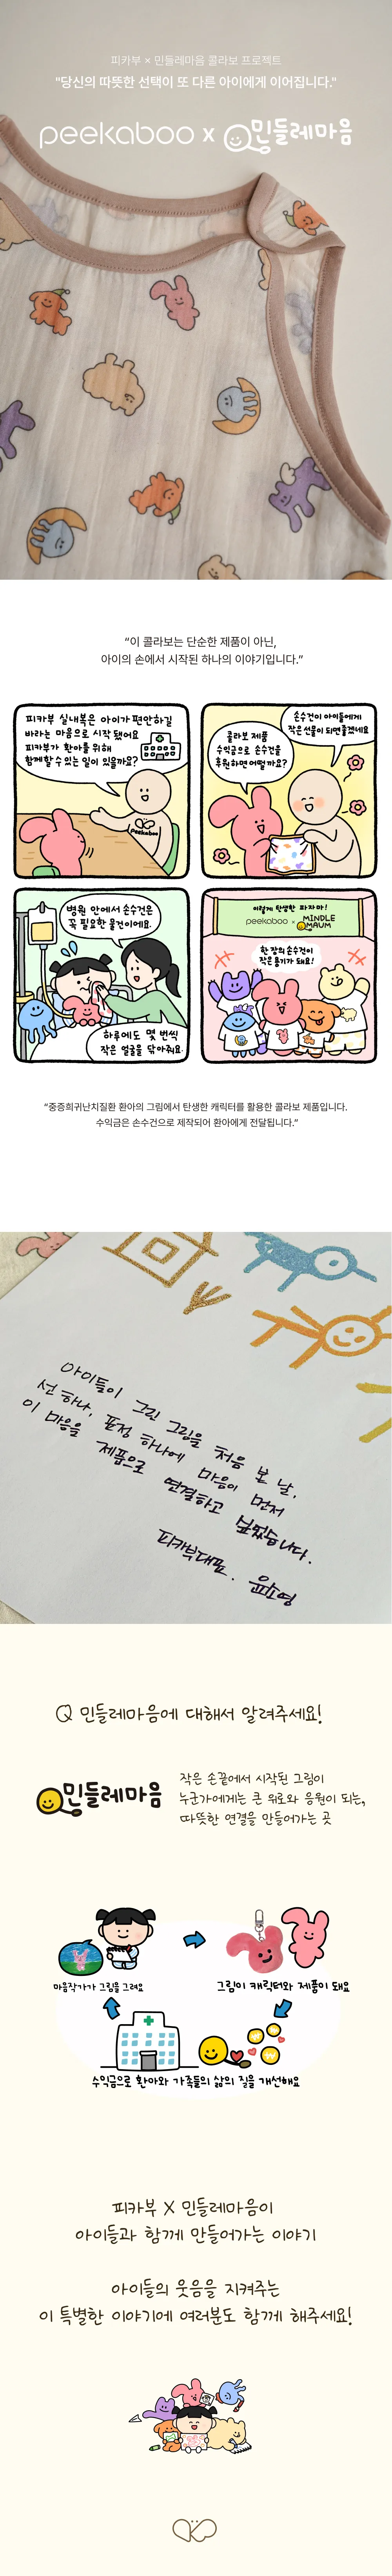 피카부 × 민들레마음 콜라보 프로젝트
"당신의 따뜻한 선택이 또 다른 아이에게 이어집니다."
peekaboo x 민들레마음
“이 콜라보는 단순한 제품이 아닌,
아이의 손에서 시작된 하나의 이야기입니다.”
피카부 실내복은 아이가 편안하길
바라는 마음으로 시작 됐어요
피카부가 환아를 위해
함께할 수 있는 일이 있을까요?
Peekaboo
손수건이 아이들에게
작은선물이 되면좋겠네요
콜라보 제품
수익금으로 손수건을
후원하면 어떨까요?
병원 안에서 손수건은
꼭 필요한 물건이에요.
하루에도 몇 번씩
작은 얼굴을 닦아줘요
이렇게 탄생한 파자마!
peekaboo x MINDLE
MAUM
한 장의 손수건이
작은 용기가 돼요!
“중증희귀난치질환 환아의 그림에서 탄생한 캐릭터를 활용한 콜라보 제품입니다.
수익금은 손수건으로 제작되어 환아에게 전달됩니다.”
아이들이 그린 그림을 처음 본 날,
선 하나, 표정 하나에 마음이 먼저
이 마음을 제품으로 연결하고 싶었습니다.
피카부대표. 윤소영
Q 민들레마음에 대해서 알려주세요!
민들레마음
작은 손끝에서 시작된 그림이
누군가에게는 큰 위로와 응원이 되는,
따뜻한 연결을 만들어가는 곳
마음작가가 그림을 그려요
그림이 캐릭터와 제품이 돼요
수익금으로 환아와 가족들의 삶의 질을 개선해요
피카부 X 민들레마음이
아이들과 함께 만들어가는 이야기
아이들의 웃음을 지켜주는
이 특별한 이야기에 여러분도 함께 해주세요!